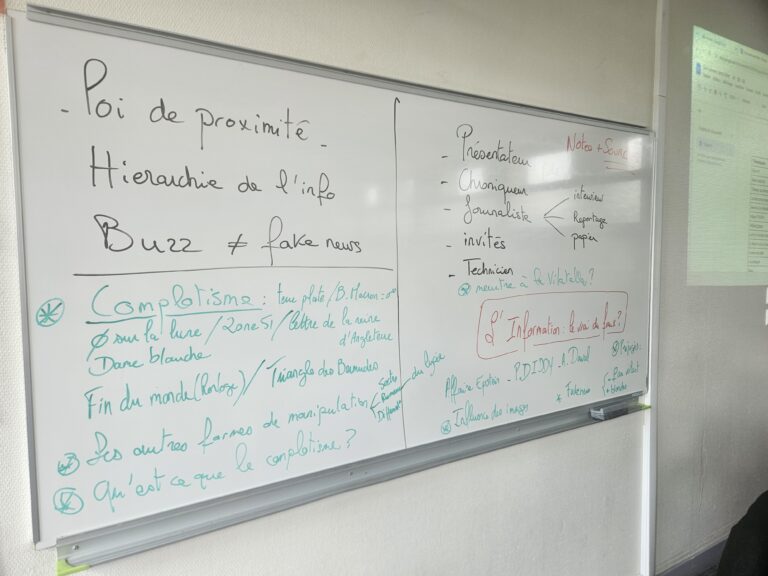 - Poi de proximité -
Hierarchie de l'info
Buzz ≠ fake news
Complotisme : terre plate / B. Macron =
Ø sur la lune / Zone 51 / lettre de la reine
d'Angleterre
Dame blanche
Fin du monde (Horloge) / Triangle des Bermudes
Les autres formes de manipulation
du lycée
Qu'est ce que le complotisme ?
- Présentateur
Notes + Sourc
- Chroniqueur
- Journaliste
interview
Reportage
papier
- invités
- Technicien
meurtre à la Vilatelle ?
L'Information : le vrai du faux ?
Affaire Epstein - P. DIDDY - A. Daval
Influence des images